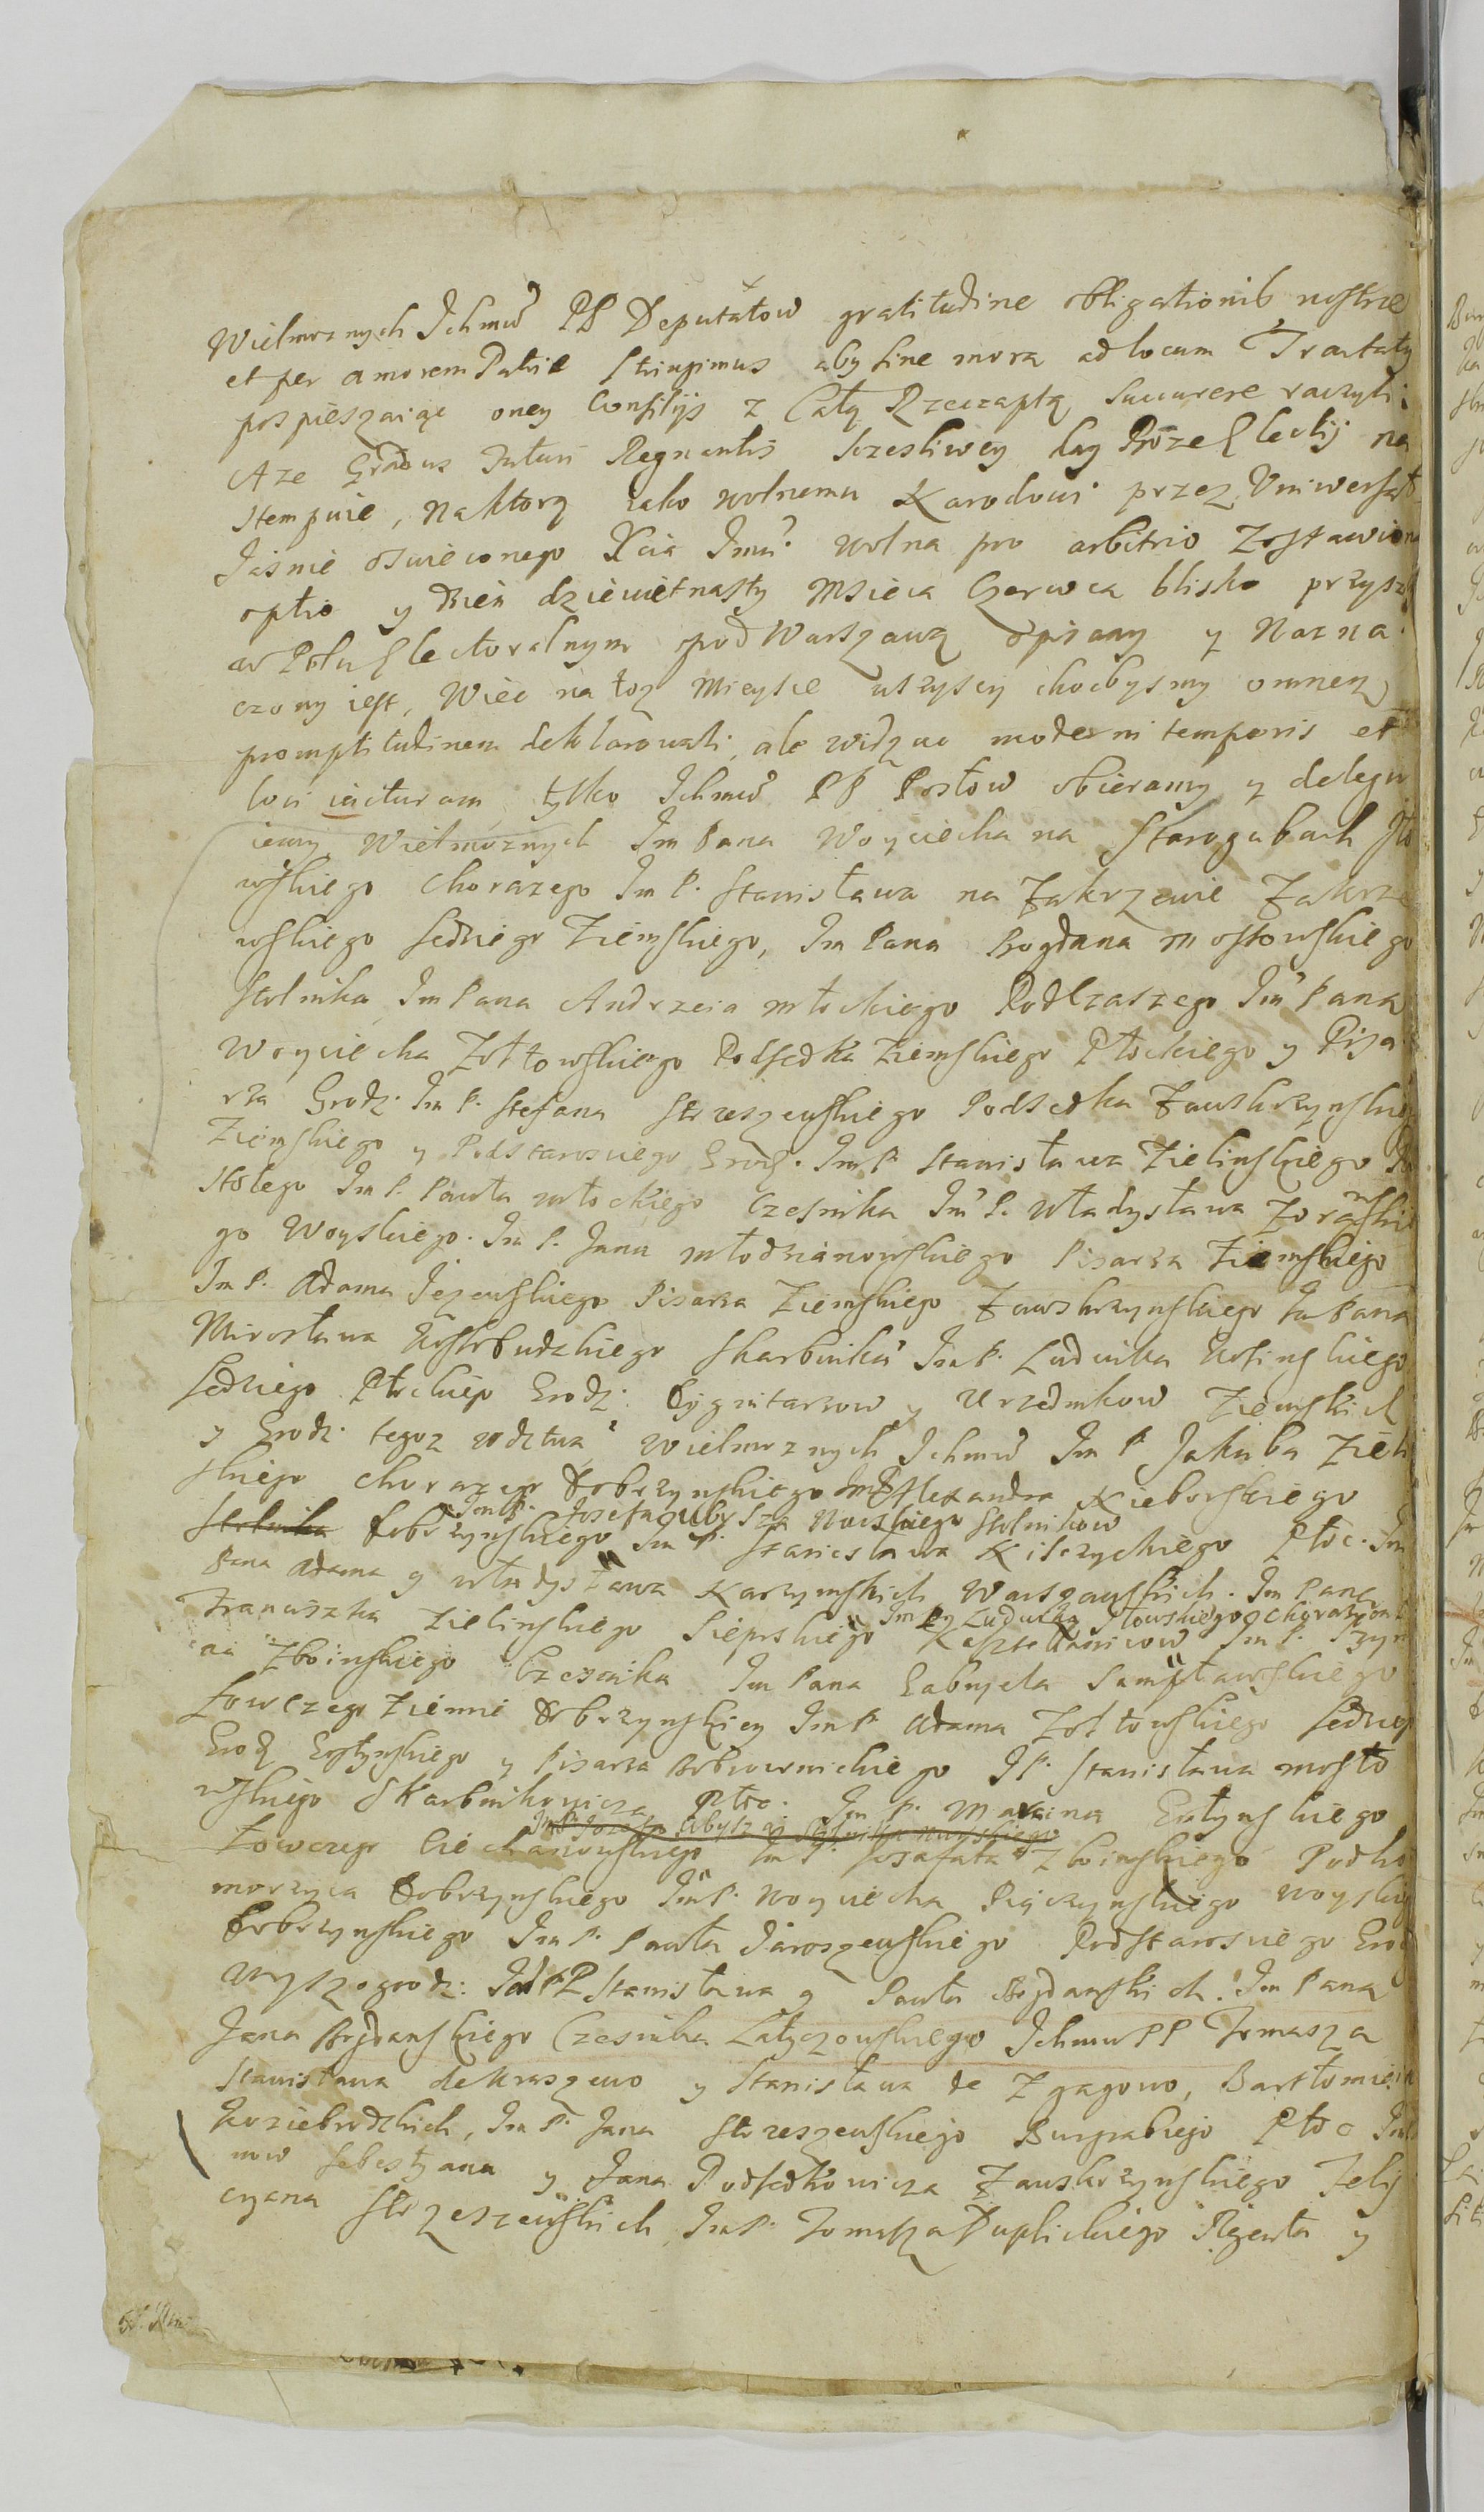 Wielmoznych Ichmw PP Deputatow gratitudine obligationib nostræ
et per amorem Patriæ stringimus aby sine mora ad locum Tractaty
pospieszaiąc oney Consilijs z Całą Rzecząptą succurere raczyli
Aze Gradus futuri Regnantis sczesliwey day Boze Electij na
stempuie, na ktorą iako wolnemu Narodowi przez Vniwersał
Jasnie oswieconego Xcia Jmci wolna pro arbitrio zostawiona
optio y dzien dziewietnasty Msieca Czerwca blisko przysz
w Polu Electoralnym pod Warszawą opisany y Nazna
czony iest, Wiec na toz Mieysce wszyscy chocbysmy omnem
promptitudinem deklarowali, ale widząc moderni temporis et
loci iacturam, tylko Ichmw PP Posłow obieramy y delegu
iemy Wielmoznych Jm Pana Woyciecha na Starogubach
wskiego Chorązego Jm P. Stanisława na Zakrzewie Zakrze
wskiego sędziego Ziemskiego, Jm Pana Bogdana Mostowskiego
Stolnika, Jm Pana Andrzeia Młockiego Podczaszego Jm Pana
Woyciecha Zołtowskiego Podsędka Ziemskiego Płockiego y Pisa
rza Grodz. Jm P. Stefana Strzeszewskiego Podsędka Zawskrzynskie
Ziemskiego y Podstarosciego Grodz. Jm P. Stanisława Zielinskiego
stolego Jm P. Pawła Młockiego Czesnika Jm P. Władysława
go Woyskiego. Jm P. Jana Młodzianowskiego Pisarza Ziemskiego
Jm P. Adama Jezewskiego Pisarza Ziemskiego Zawskrzynskiego Jm Pana
Mirosława Kostrbudzkiego Skarbnika Jm P. Ludwika Kosinskiego
sędziego Płockiego Grodz. Dygnitarzow y Urzędnikow Ziemskich
y Grodz. tegoz wdztwa, Wielmoznych Ichmw Jm P Jakuba Zieli
skiego Chorązego Dobrzynskiego Jm P Alexandra Nieborskiego
Jm P. Jozefa Nurskiego Stolnikow
Stolnika Dobrzynskiego Jm P. Stanisława Kilczyckiego Płoc. Jm
Pana Adama y Władysława Karzynskich Warszawskich. Jm Pana
Franciszka Zielinskiego Sieprskiego Kasztelanicow Jm P. Szym
na Zboinskiego Czesnika Jm Pana Gabryela Sumpławskiego
Łowczego Ziemie Dobrzynskiey Jm P. Adama Zołtowskiego sędziego
Grodz Gostynskiego y Pisarza Bobrownickiego J P. Stanisława Mosto
wskiego Skarbnikowicza Płoc. Jm P. Marcina Gostynskiego
Łowczego Ciechanowskiego Jm P. Jozafata Zboinskiego Podko
morzyca Dobrzynskiego Jm P. Woyciecha Pięczynskiego Woyskie
Dobrzynskiego Jm P. Pawła Jaroszewskiego Podstarosciego Grod
Wyszogrodz: Jch PP Stanisława y Pawła Bozdanskich. Jm Pana
Jana Bozdanskiego Czesnika Latyczowskiego Ichmw PP Tomasza
Stanisława de Kraszewo y Stanisława de Zgagowo, Bartłomieia
Koziebrodzkich, Jm P. Jana Strzeszewskiego Burgrabiego Płoc
now Sebestyana y Jana Podsędkowicza Zawskrzynskiego Feli
cyana Strzeszewskich, Jm P. Tomasza Duplickiego Regenta y